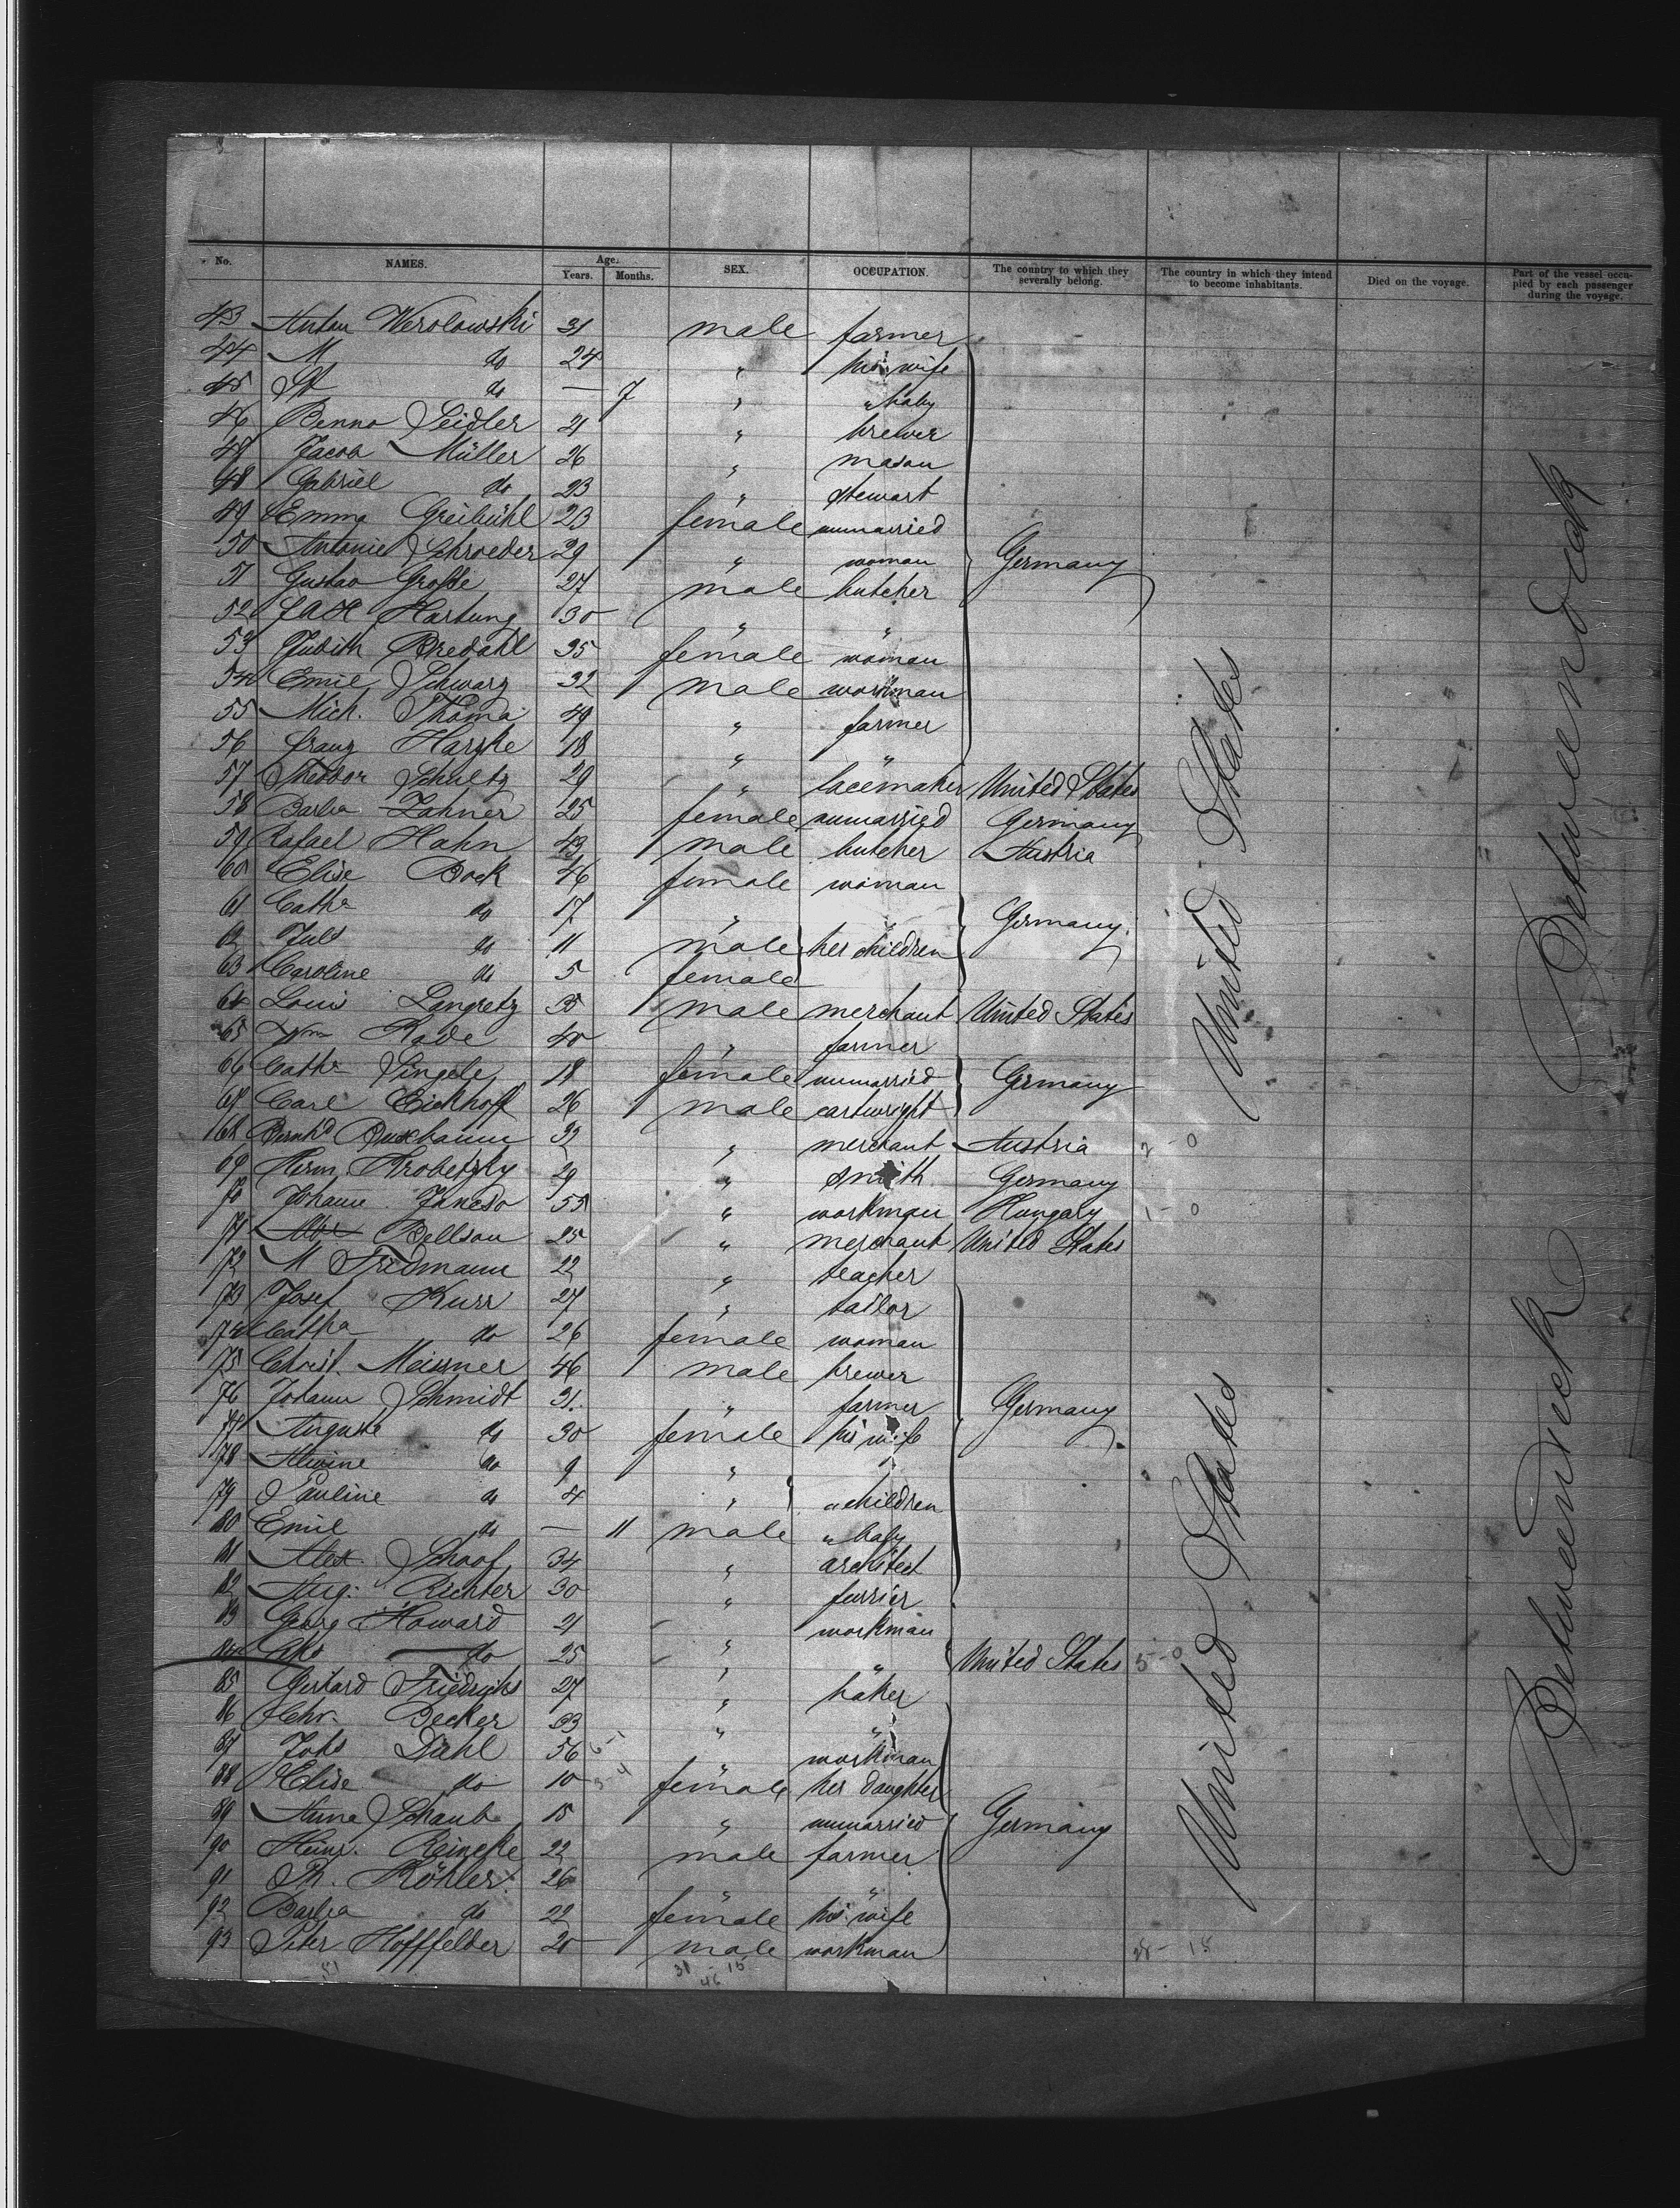 No. NAMES. Age. Years. Months. SEX. OCCUPATION. The country to which they severally belong. The country in which they intend to become inhabitants. Died on the voyage. Part of the vessel occupied by each passenger during the voyage.
43 Anton Werolowski 31 male farmer
44 M do 24 " his wife
45 St do — 7 " " baby
46 Benno Seidler 21 " brewer
47 Jacob Müller 26 " mason
48 Gabriel do 23 " stewart
49 Emma Greibühl 23 female unmarried
50 Antonie Schroeder 29 " woman Germany
51 Gustav Große 27 male butcher
52 Hartung 30 " "
53 Judith Bredahl 35 female woman
54 Emil Schwarz 32 male workman
55 Mich. Thoma 49 " farmer
56 Franz Harzke 18 " "
57 Theodor Schultz 29 " lacemaker United States
58 Barba Zahner 25 female unmarried Germany
59 Rafael Hahn 43 male butcher Austria
60 Elise Bock 46 female woman
61 Catha do 17 " Germany
62 Juls do 11 male her children
63 Caroline do 5 female
64 Louis Langretz 35 male merchant United States
65 Wm Rode 40 " farmer
66 Catha Singele 18 female unmarried Germany
67 Carl Eickhoff 26 male cartwright
68 Bernhd Buxbaum 33 " merchant Austria 2 - 0
69 Herm. Krobetzky 29 " smith Germany
70 Johann 55 " workman Hungary 1 - 0
71 Bellson 25 " merchant United States
72 M Fridmann 22 " teacher
73 Josef Kurr 27 " tailor
74 Catha do 26 female woman
75 Christ. Meissner 46 male brewer
76 Johann Schmidt 31 " farmer Germany
77 Auguste do 30 female his wife
78 Alwine do 9 "
79 Pauline do 4 " " children
80 Emil do — 11 male " baby
81 Alex. Schaaf 34 " architect
82 Aug. Richter 30 " furrier
83 Georg Howard 21 " workman
84 do 25 " " United States 5 - 0
85 Gerhard Friedrichs 27 " baker
86 Chr. Becker 33 " "
87 Johs Dahl 56 " workman
88 Elise do 10 female her daughter
89 Anna Schaub 15 " unmarried Germany
90 Heinr. Reineke 22 male farmer
91 Th. Köhler 26 " "
92 Barba do 22 female his wife
93 Peter Hofffelder 20 male workman
United States
United States
Betweendeck
Betweendeck